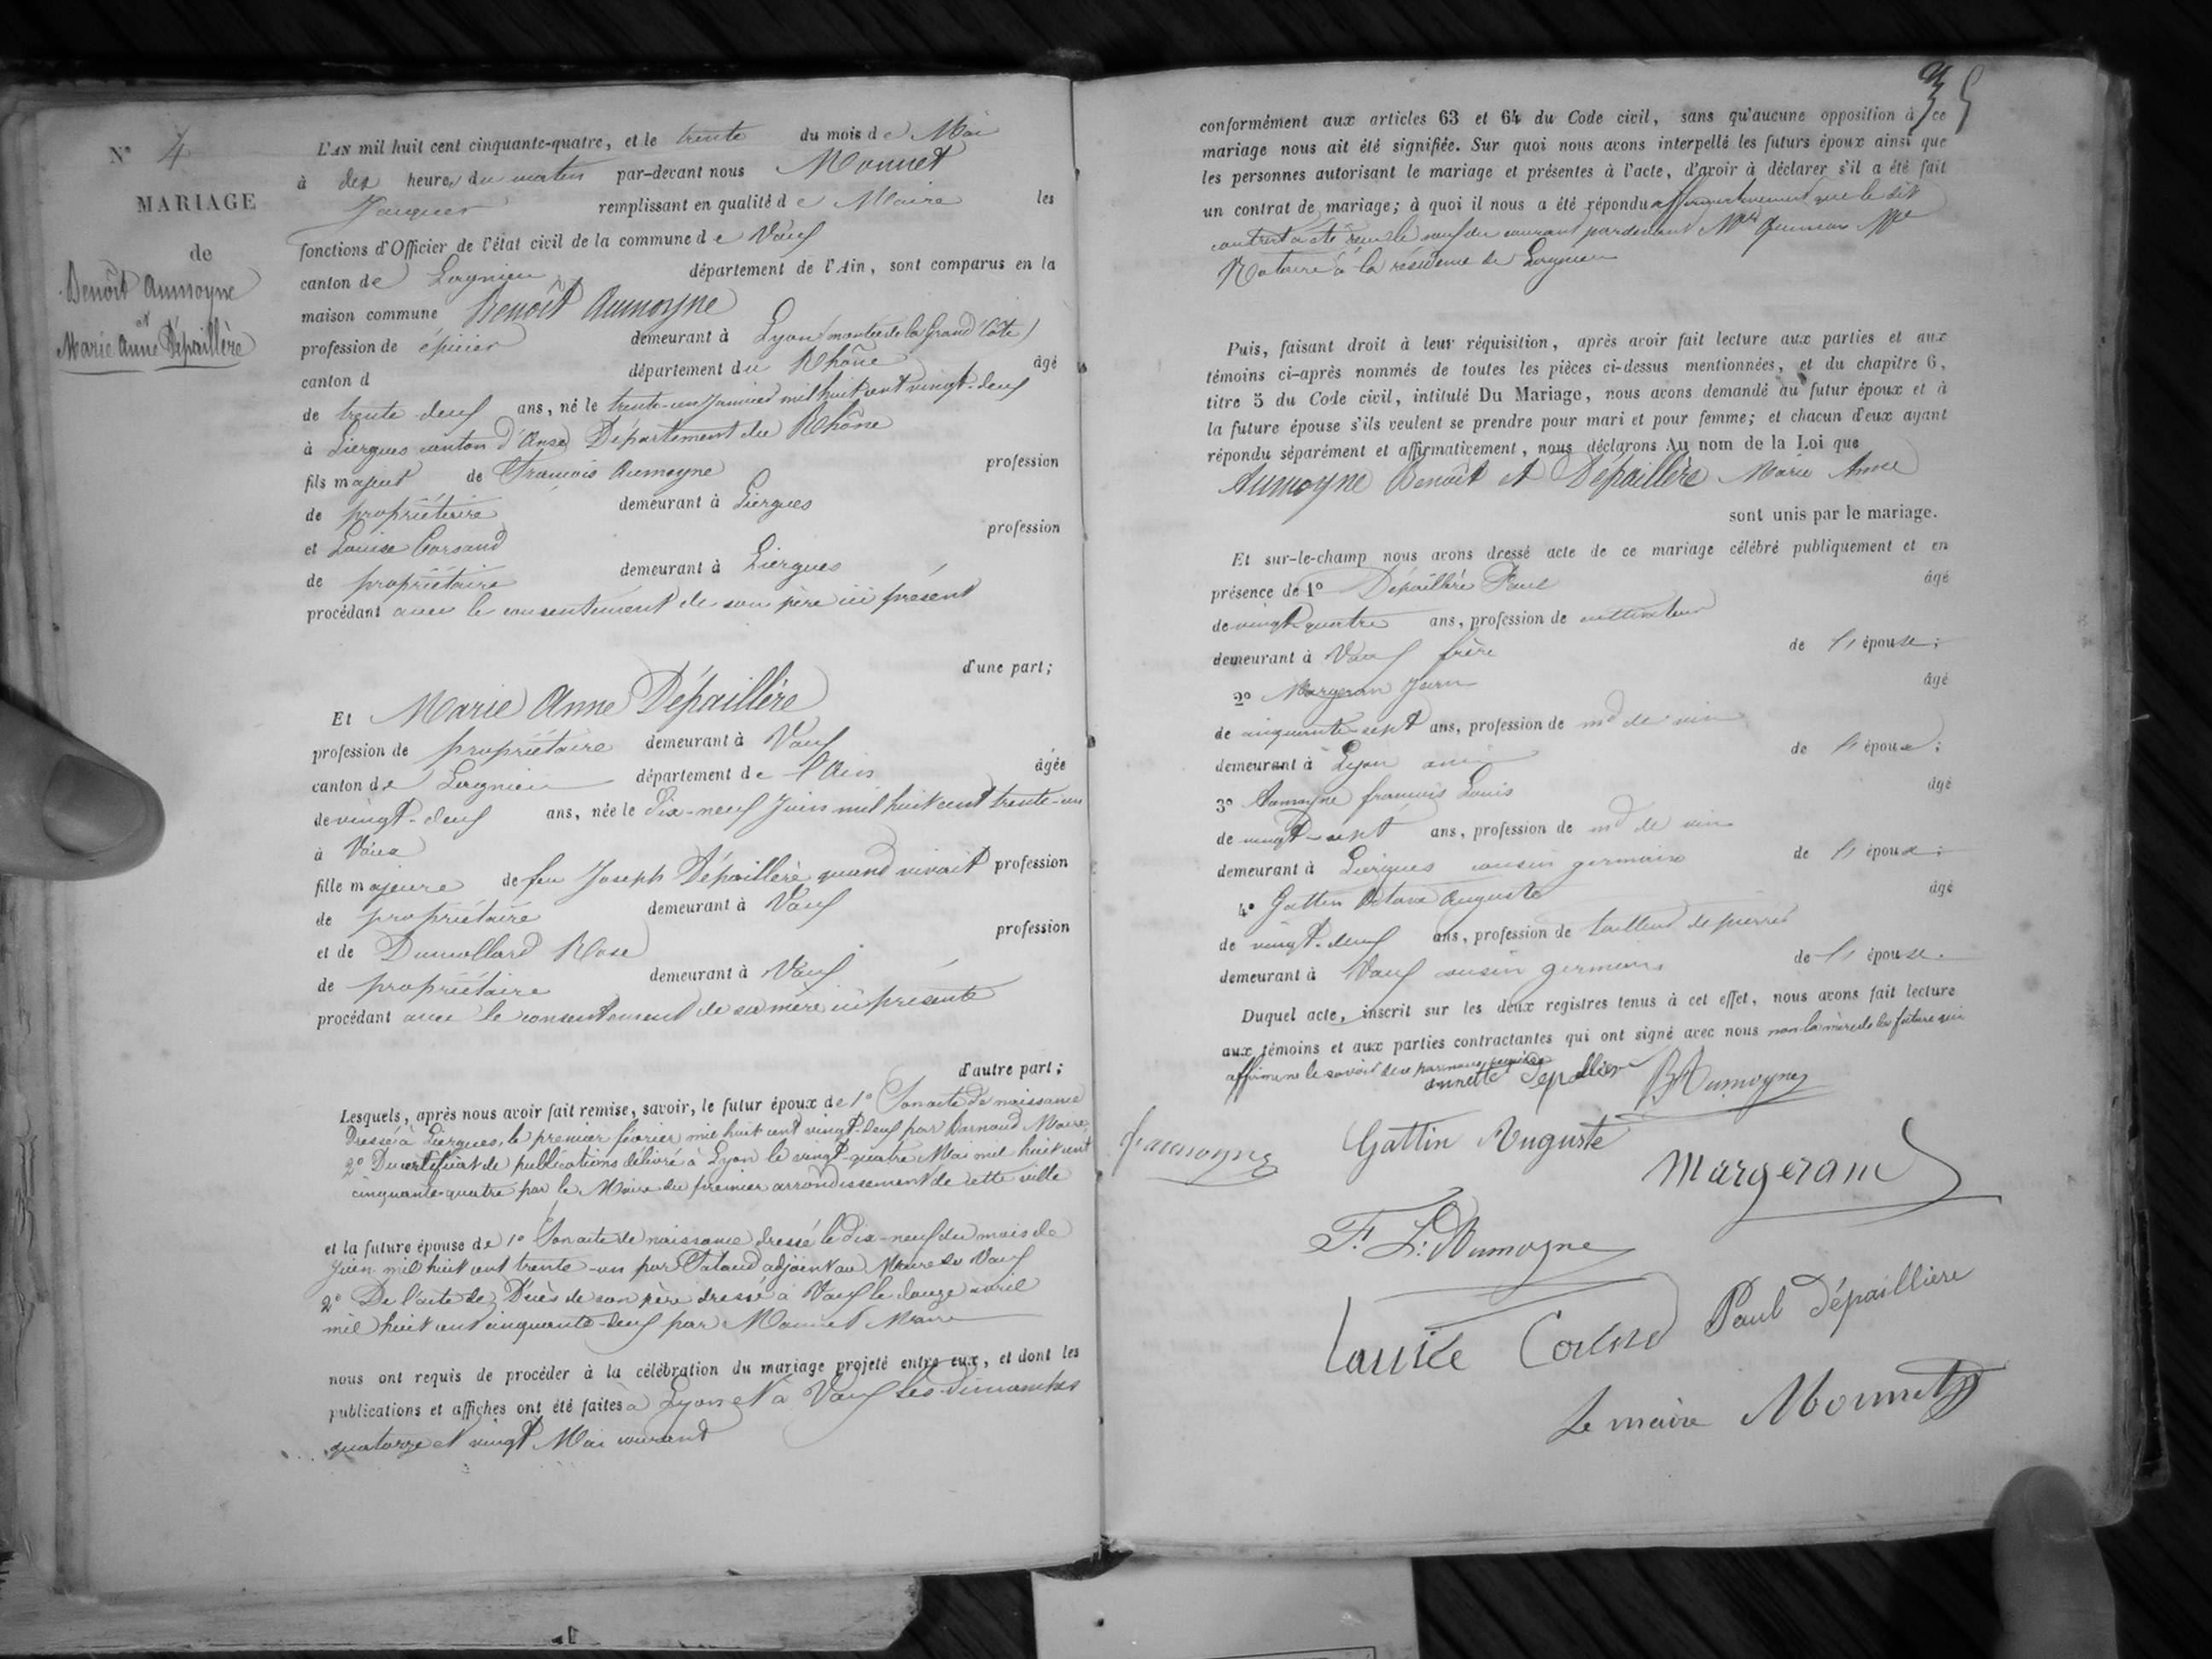 N° 4
MARIAGE
de
Benoît Aumoyne
et
Marie Anne Dépaillère
L'AN mil huit cent cinquante-quatre, et le trente du mois de Mai
à dix heures du matin par-devant nous Monnet
Jacques remplissant en qualité de Maire les
fonctions d'Officier de l'état civil de la commune de Vaux
canton de Lagnieu département de l'Ain, sont comparus en la
maison commune Benoît Aumoyne
profession de épicier demeurant à Lyon (montée de la Grand Côte)
canton d département du Rhône âgé
de trente-deux ans, né le trente-un Janvier mil huit cent vingt-deux
à Liergues canton d'Anse Département du Rhône
fils majeur de François Aumoyne profession
de propriétaire demeurant à Liergues
et Louise Corsand profession
de propriétaire demeurant à Liergues
procédant avec le consentement de son père ici présent
d'une part;
Et Marie Anne Dépaillère
profession de propriétaire demeurant à Vaux
canton de Lagnieu département de l'Ain âgée
de vingt-deux ans, née le dix-neuf Juin mil huit cent trente-un
à Vaux
fille majeure de feu Joseph Dépaillère quand vivait profession
de propriétaire demeurant à Vaux
et de Dumollard Rose profession
de propriétaire demeurant à Vaux
procédant avec le consentement de sa mère ici présente
d'autre part;
Lesquels, après nous avoir fait remise, savoir, le futur époux de 1° Son acte de naissance
dressé à Liergues, le premier février mil huit cent vingt-deux par Maire,
2° Du certificat de publications délivré à Lyon le vingt-quatre Mai mil huit cent
cinquante-quatre par le Maire du premier arrondissement de cette ville
et la future épouse de 1° Son acte de naissance dressé le dix-neuf du mois de
Juin mil huit cent trente-un par adjoint au Maire de Vaux
2° De l'acte de Décès de son père dressé à Vaux le douze avril
mil huit cent cinquante-deux par Monnet Maire
nous ont requis de procéder à la célébration du mariage projeté entre eux, et dont les
publications et affiches ont été faites à Lyon et à Vaux les dimanches
quatorze et vingt Mai courant
35
conformément aux articles 63 et 64 du Code civil, sans qu'aucune opposition à ce
mariage nous ait été signifiée. Sur quoi nous avons interpellé les futurs époux ainsi que
les personnes autorisant le mariage et présentes à l'acte, d'avoir à déclarer s'il a été fait
un contrat de mariage; à quoi il nous a été répondu affirmativement que le dit
contrat a été reçu le neuf du courant pardevant
Notaire à la résidence de Lagnieu
Puis, faisant droit à leur réquisition, après avoir fait lecture aux parties et aux
témoins ci-après nommés de toutes les pièces ci-dessus mentionnées, et du chapitre 6,
titre 5 du Code civil, intitulé Du Mariage, nous avons demandé au futur époux et à
la future épouse s'ils veulent se prendre pour mari et pour femme; et chacun d'eux ayant
répondu séparément et affirmativement, nous déclarons Au nom de la Loi que
Aumoyne Benoît et Dépaillère Marie Anne
sont unis par le mariage.
Et sur-le-champ nous avons dressé acte de ce mariage célébré publiquement et en
présence de 1° Dépaillère Paul âgé
de vingt-quatre ans, profession de cultivateur
demeurant à Vaux frère de l'épouse;
2° Margeran Jean âgé
de cinquante-sept ans, profession de md de vin
demeurant à Lyon ami de l'époux;
3° Aumoyne françois Louis âgé
de vingt-sept ans, profession de md de vin
demeurant à Liergues cousin germain de l'époux;
4° Gattin Octave Auguste âgé
de vingt-deux ans, profession de tailleur de pierres
demeurant à Vaux cousin germain de l'épouse.
Duquel acte, inscrit sur les deux registres tenus à cet effet, nous avons fait lecture
aux témoins et aux parties contractantes qui ont signé avec nous non la mère de la future qui
affirme ne le savoir de ce par nous requise
annette Depallier BAumoyne
faumoyne Gattin Auguste Margerand
F. L. Aumoyne
Louise Corsand Paul Dépaillière
Le maire Monnet